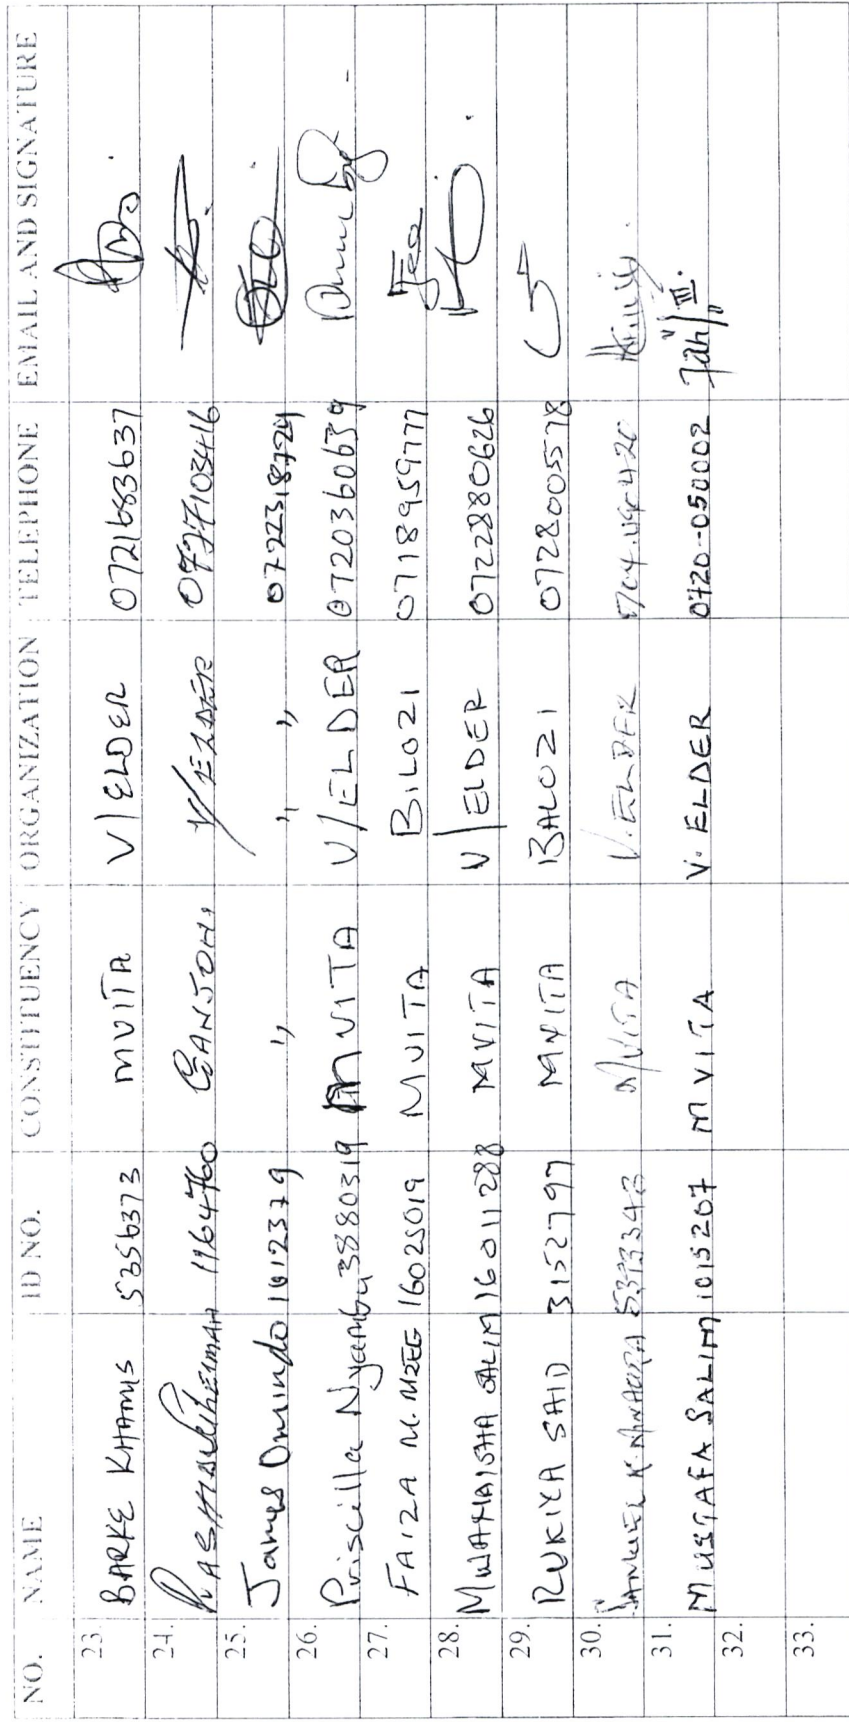 NO. NAME ID NO. CONSTITUENCY ORGANIZATION TELEPHONE EMAIL AND SIGNATURE
23. BARKE KHAMIS 5356373 MVITA V/ELDER 0721683637
24. 1164760 V/ELDER
25. James Omindo 1812379 " " "
26. Priscilla Nyambu 3880319 MVITA V/ELDER 0720360659
27. FAIZA M. MZEE 16025019 MVITA BILOZI 0718959777
28. MWANAISHA SALIM 16011288 MVITA V/ELDER 0722880626
29. RUKIYA SAID 3152797 MVITA BALOZI 0728005578
30. MVITA V. ELDER
31. MUSTAFA SALIM 1015207 MVITA V. ELDER 0720-050002
32.
33.